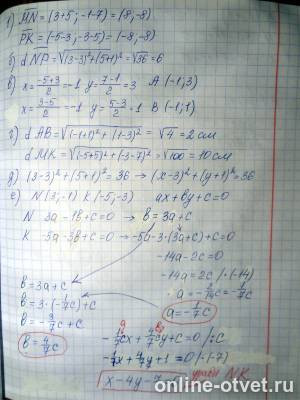 1) MN = (3+5; -1-7) = (8; -8)
PK = (-5-3; -3-5) = (-8; -8)
б) d NP = √(3-3)²+(5+1)² = √36 = 6
в) x = -5+3/2 = -1 y = 7-1/2 = 3 A (-1; 3)
x = 3-5/2 = -1 y = 5-3/2 = 1 B (-1; 1)
г) d AB = √(-1+1)²+(1-3)² = √4 = 2 см
d MK = √(-5+5)²+(-3-7)² = √100 = 10 см
д) (3-3)²+(5+1)² = 36 → (x-3)²+(y+1)² = 36
е) N (3; -1) K (-5; -3) ax+by+c=0
N 3a-1b+c=0 → b=3a+c
K -5a-3b+c=0 → -5a-3(3a+c)+c=0
-14a-2c=0
b=3a+c -14a=2c /·(-14)
b=3·(-1/7c)+c a=-2/14c=-1/7c
b=-3/7c+c a=-1/7c
b=4/7c -1/7cx+4/7cy+c=0 /:c
-1/7x+4/7y+1=0 |·(-7)
x-4y-7 NK
online-otvet.ru